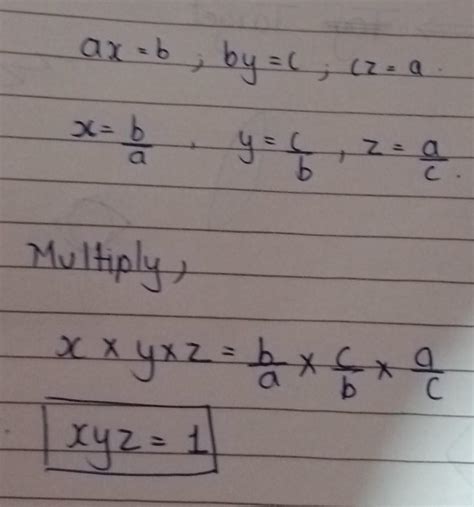 ax = b ; by = c ; cz = a .
x = b/a , y = c/b , z = a/c .
Multiply,
x × y × z = b/a × c/b × a/c
xyz = 1